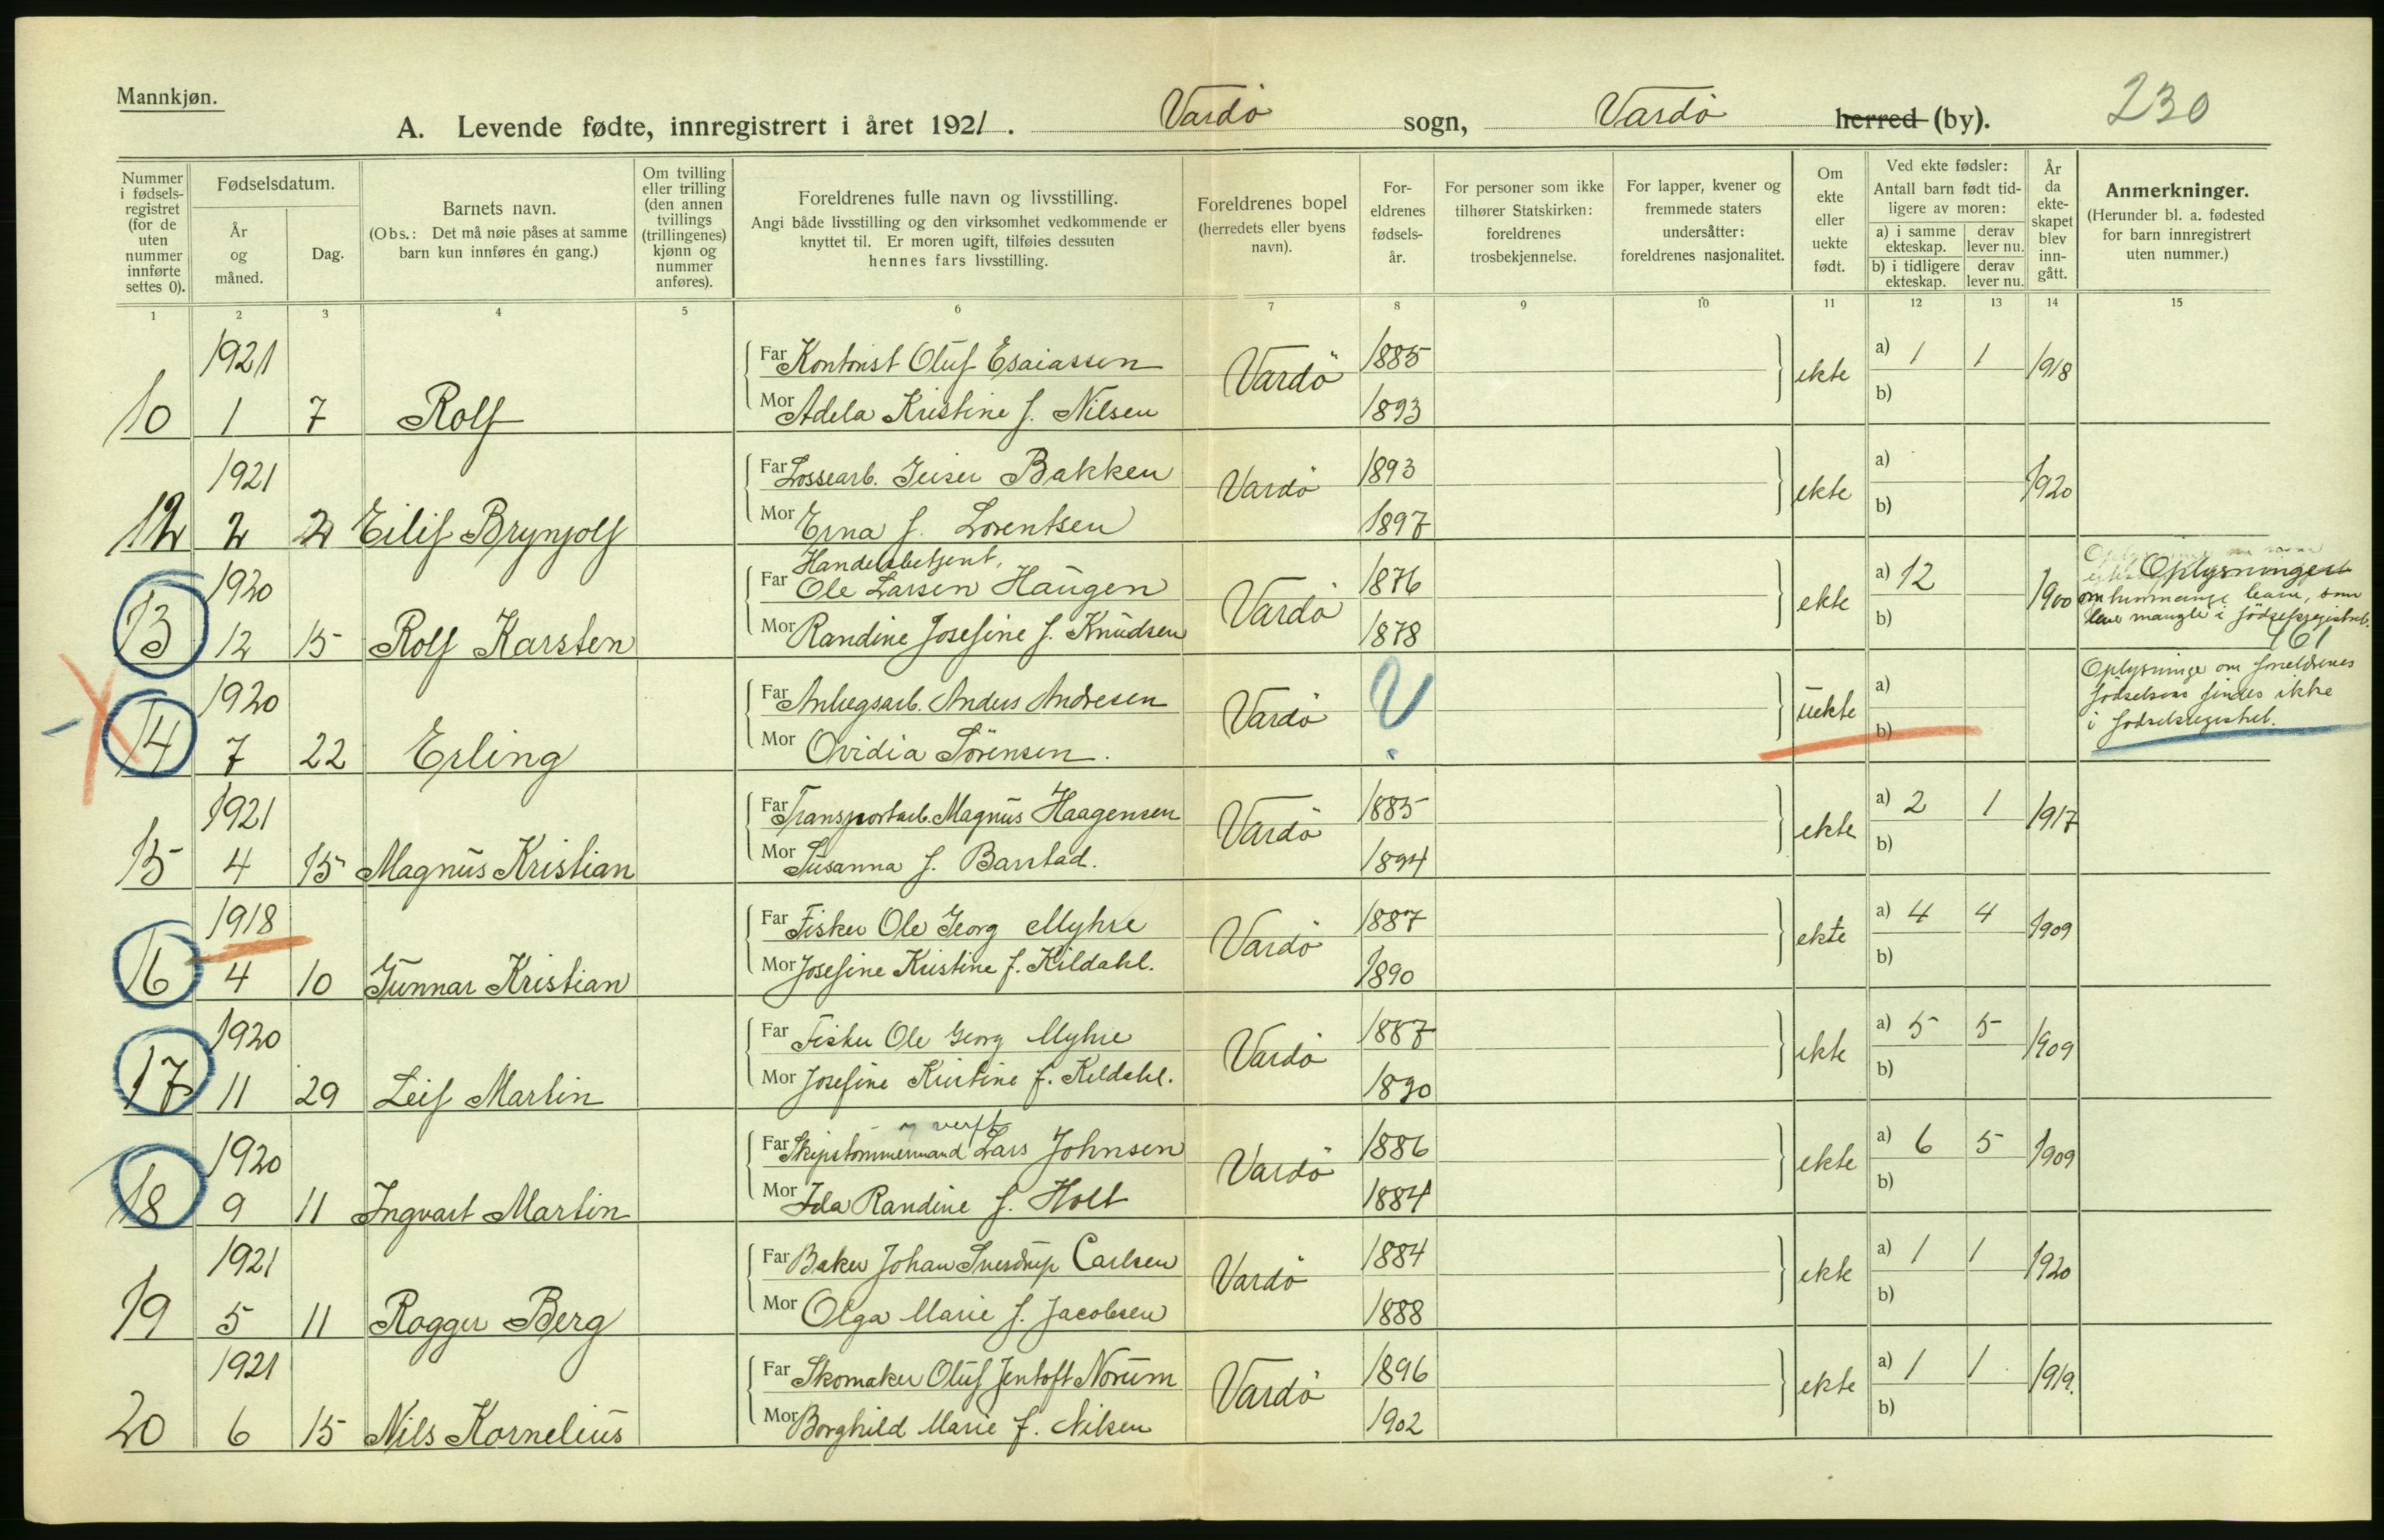 Mannkjøn.
A. Levende fødte, innregistrert i året 1921. Vardö sogn, Vardö herred (by). 230
Nummer i fødselsregistret (for de uten nummer innførte settes 0).
Fødselsdatum.
År og måned.
Dag.
Barnets navn.
(Obs.: Det må nøie påses at samme barn kun innføres én gang.)
Om tvilling eller trilling (den annen tvillings (trillingenes) kjønn og nummer anføres).
Foreldrenes fulle navn og livsstilling.
Angi både livsstilling og den virksomhet vedkommende er knyttet til. Er moren ugift, tilføies dessuten hennes fars livsstilling.
Foreldrenes bopel (herredets eller byens navn).
Foreldrenes fødselsår.
For personer som ikke tilhører Statskirken: foreldrenes trosbekjennelse.
For lapper, kvener og fremmede staters undersåtter: foreldrenes nasjonalitet.
Om ekte eller uekte født.
Ved ekte fødsler:
Antall barn født tidligere av moren:
a) i samme ekteskap. derav lever nu.
b) i tidligere ekteskap. derav lever nu.
År da ekteskapet blev inngått.
Anmerkninger.
(Herunder bl. a. fødested for barn innregistrert uten nummer.)
1 2 3 4 5 6 7 8 9 10 11 12 13 14 15
1921 Far Kontorist Oluf Esaiassen Vardö 1885 ekte a) 1 1 1918
10 1 7 Rolf Mor Adela Kristine f. Nilsen 1893 b)
1921 Far Lossearb. Geiser Bakken Vardö 1893 ekte a) 1920
12 2 2 Eilif Brynjolf Mor Erna f. Lorentsen 1897 b)
Handelsbetjent,
1920 Far Ole Larsen Haugen Vardö 1876 ekte a) 12 1900 Oplysninger om
13 12 15 Rolf Karsten Mor Randine Josefine f. Knudsen 1878 b) lever mangler i fødselsregistret.
161
1920 Far Anlegsarb. Anders Andresen Vardö ? uekte a) Oplysninger om foreldrenes
fødselsaar findes ikke
14 7 22 Erling Mor Ovidia Sörensen. b) i fødselsregistret.
1921 Far Transportarb. Magnus Haagensen Vardö 1885 ekte a) 2 1 1917
15 4 15 Magnus Kristian Mor Susanna f. Barstad. 1894 b)
1918 Far Fisker Ole Georg Myhre Vardö 1887 ekte a) 4 4 1909
16 4 10 Gunnar Kristian Mor Josefine Kristine f. Kildahl. 1890 b)
1920 Far Fisker Ole Georg Myhre Vardö 1887 ekte a) 5 5 1909
17 11 29 Leif Martin Mor Josefine Kristine f. Kildahl. 1890 b)
verft
1920 Far Skipstømmermand Lars Johnsen Vardö 1886 ekte a) 6 5 1909
18 9 11 Ingvart Martin Mor Ida Randine f. Holt 1884 b)
1921 Far Baker Johan Sverdrup Carlsen Vardö 1884 ekte a) 1 1 1920
19 5 11 Rogger Berg Mor Olga Marie f. Jacobsen 1888 b)
1921 Far Skomaker Oluf Jentoft Norum Vardö 1896 ekte a) 1 1 1919.
20 6 15 Nils Kornelius Mor Borghild Marie f. Nilsen 1902 b)